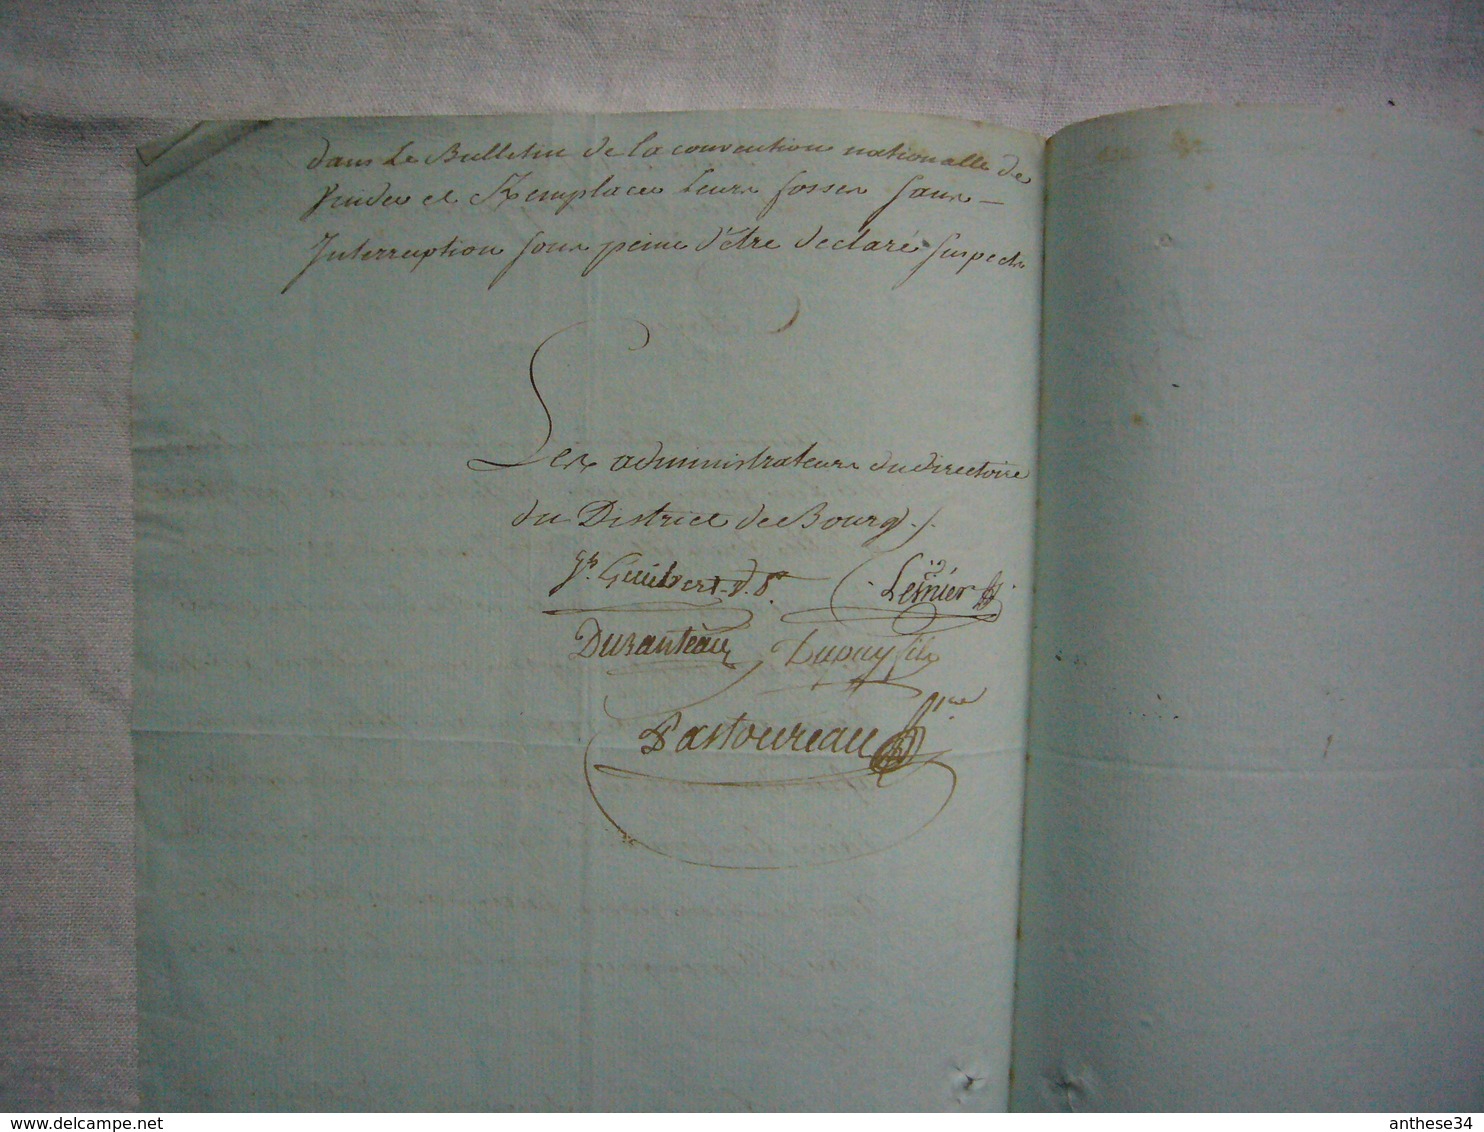 dans Le Bulletin de la convention nationalle de
Vuider et Remplacer Leurs fosses sans
Interruption sous peine d'être declaré suspects
Les administrateurs du directoire
du District de Bourg
Guibert
Duranteau Dupuy fils
Pastoureau
anthese34